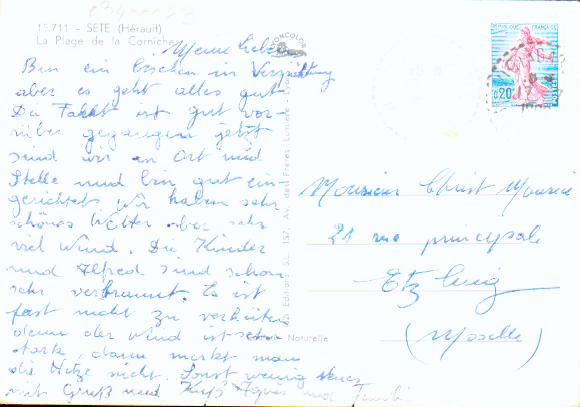 15.711 - SETE (Hérault)
La Plage de la Corniche
Meine Lieben
Bin ein bischen in Verspätung
aber es geht alles gut.
Die Fahrt ist gut vor-
rüber gegangen jetzt
sind wir an Ort und
Stelle und bin gut ein-
gerichtet wir haben sehr
schönes Wetter aber sehr
viel Wind. Die Kinder
und Alfred sind schon
sehr verbrannt. Es ist
fast nicht zu verhüten
denn der Wind ist sehr
stark, dann merkt man
die Hitze nicht. Sonst wenig neues
mit Gruß und Kuß Agnes und
LYONCOLOR
Editions S.L. 157, Av. des Frères Lumière - Lyon
Naturelle
REPUBLIQUE FRANÇAISE
0,20
Monsieur Christ Maurice
21 rue principale
Etzling
(Moselle)